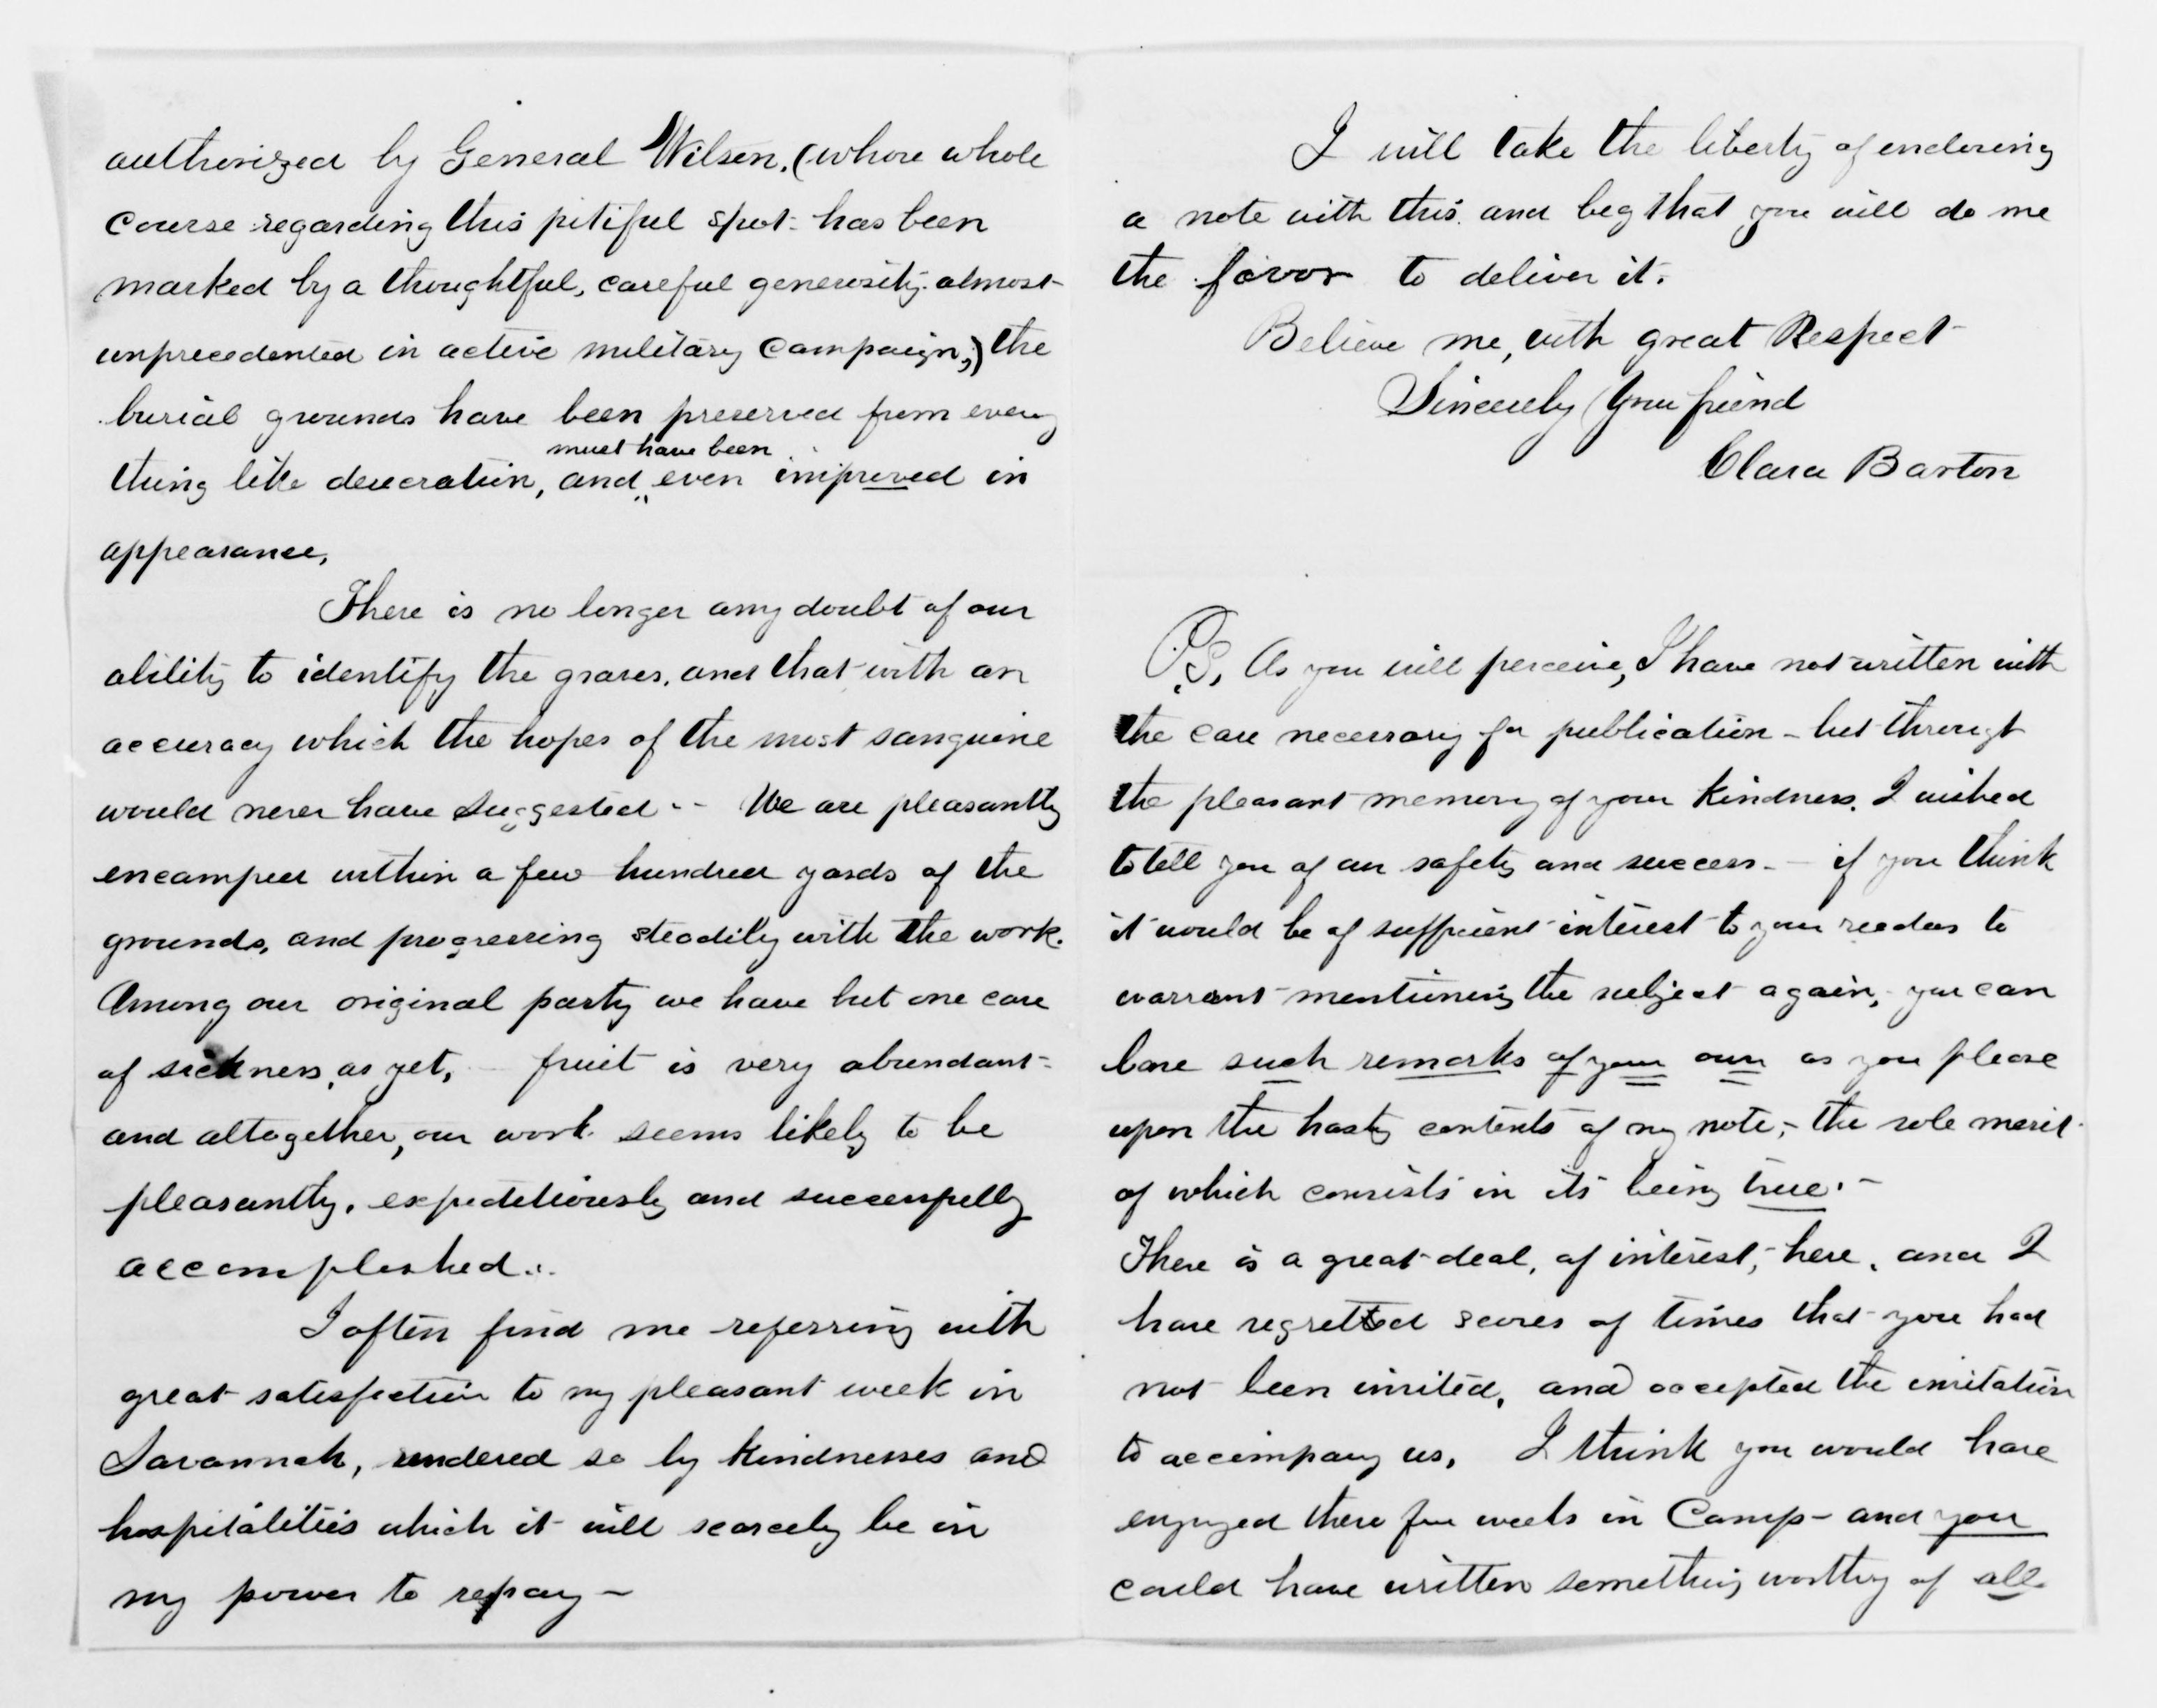 authorized by General Wilson, (whose whole
course regarding this pitiful spot has been
marked by a thoughtful, careful generosity almost
unprecedented in active military campaign;) the
burial grounds have been preserved from every
must have been
thing like desecration, and even improved in
appearance,
There is no longer any doubt of our
ability to identify the graves, and that with an
accuracy which the hopes of the most sanguine
would never have suggested -- We are pleasantly
encamped within a few hundred yards of the
grounds, and progressing steadily with the work.
Among our original party we have but one case
of sickness, as yet, - fruit is very abundant -
and altogether, our work seems likely to be
pleasantly, expeditiously and successfully
accomplished..
I often find me referring with
great satisfaction to my pleasant week in
Savannah, rendered so by kindnesses and
hospitalities which it will scarcely be in
my power to repay -
I will take the liberty of enclosing
a note with this and beg that you will do me
the favor to deliver it.
Believe me, with great Respect
Sincerely Your friend
Clara Barton
P.S. As you will perceive, I have not written with
the care necessary for publication - but through
the pleasant memory of your kindness. I wished
to tell you of our safety and success. - if you think
it would be of sufficient interest to your readers to
warrant mentioning the subject again, you can
base such remarks of your own as you please
upon the hasty contents of my note, - the sole merit
of which consists in its being true. -
There is a great deal, of interest, here, and I
have regretted scores of times that you had
not been invited, and accepted the invitation
to accompany us, I think you would have
enjoyed these few weeks in Camp - and you
could have written something worthy of all